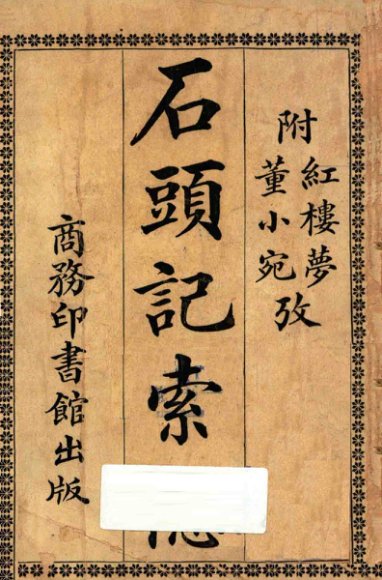 附
紅樓夢
董小宛
攷
石頭記索
商務印書館出版